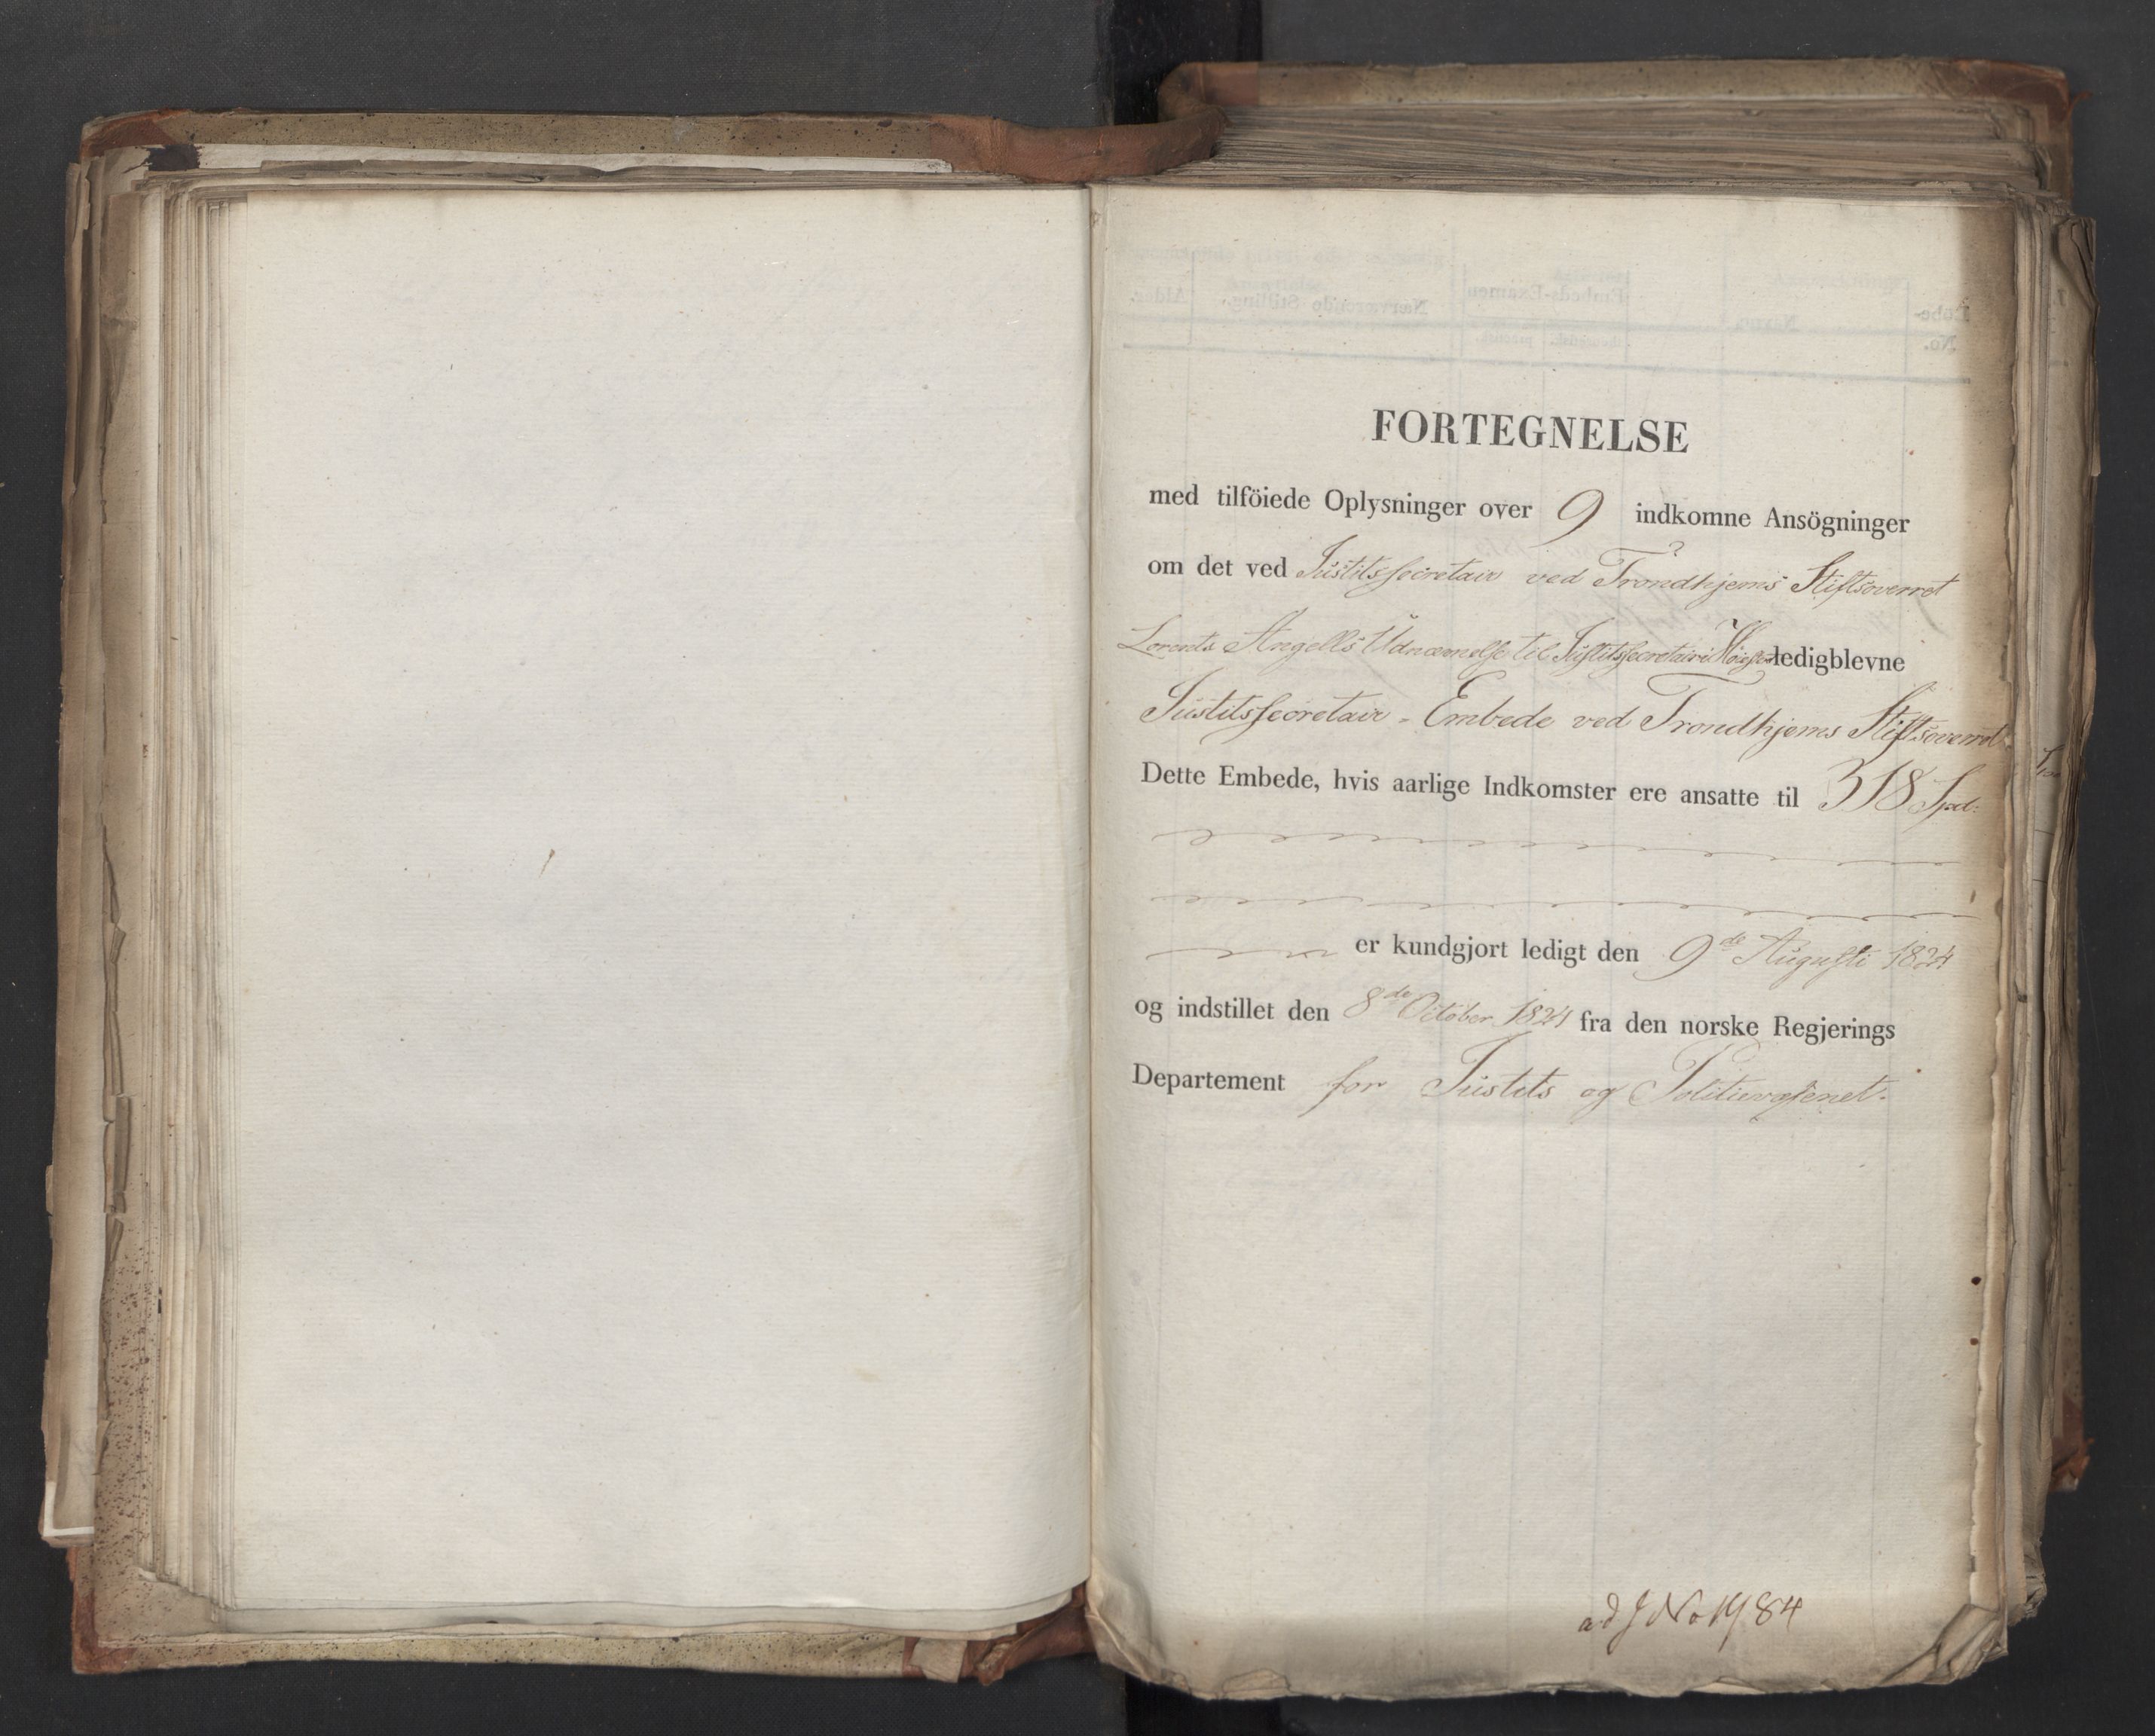 FORTEGNELSE
med tilföiede Oplysninger over 9 indkomne Ansögninger
om det ved Justitssecretair ved Trondhjems Stiftsoverret
Lorents Angells Udnævnelse til Justitssecretair i ledigblevne
Justitssecretair-Embede ved Trondhjems Stiftsoverret
Dette Embede, hvis aarlige Indkomster ere ansatte til 318 Spd:
er kundgjort ledigt den 9de Augusti 1824
og indstillet den 8de October 1824 fra den norske Regjerings
Departement for Justits og Politievæsenet.
ad J No 1984